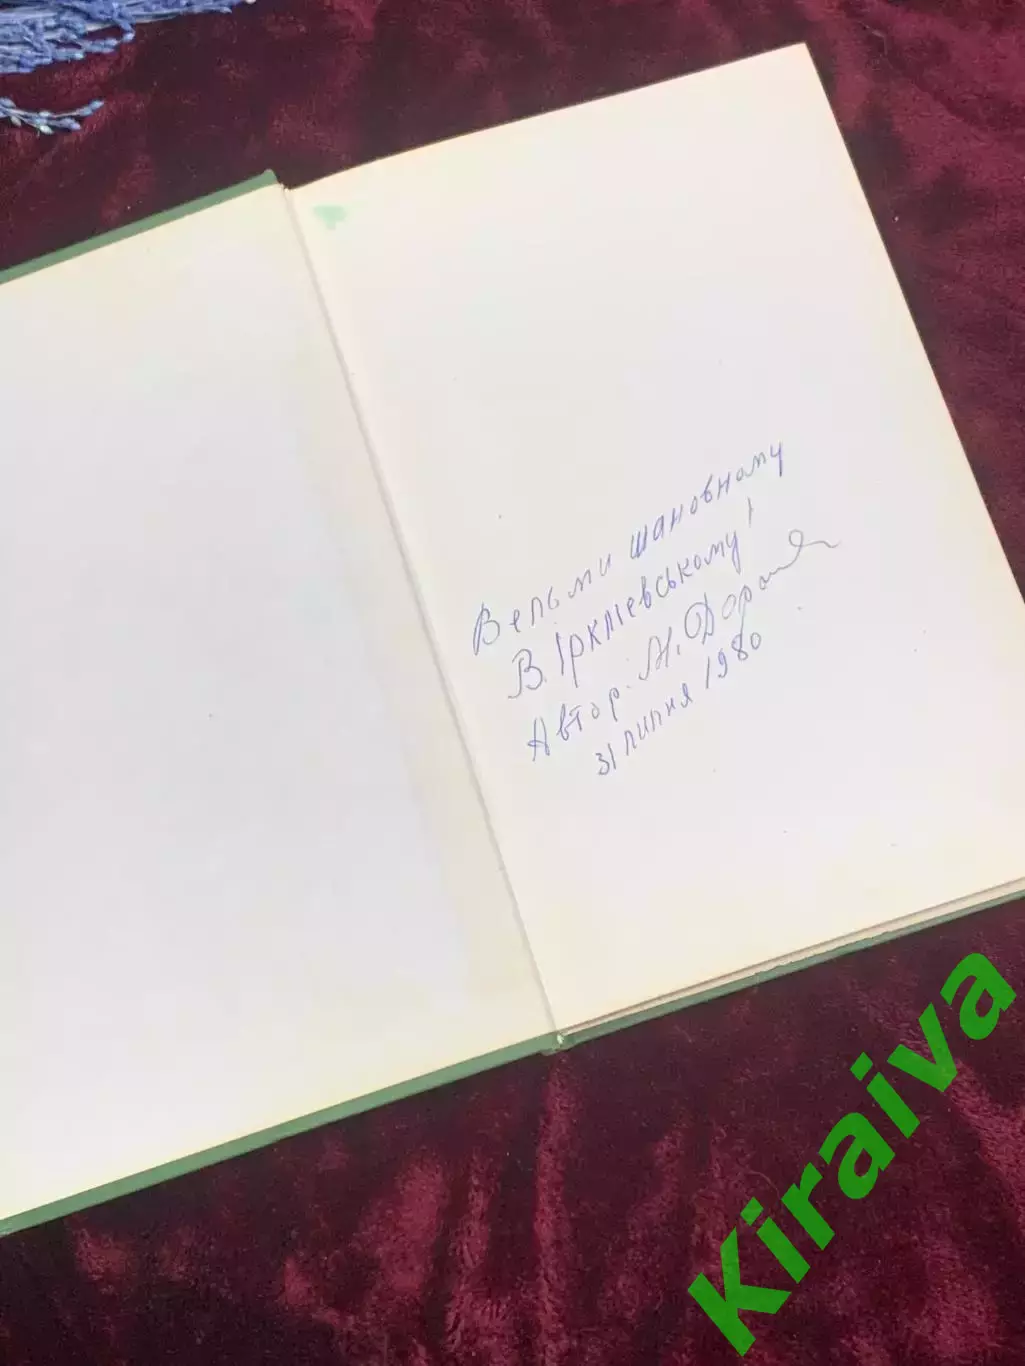 Вельми шановному
В. Іркліевському!
Автор: М. Дорош
31 липня 1980
Kiraiva